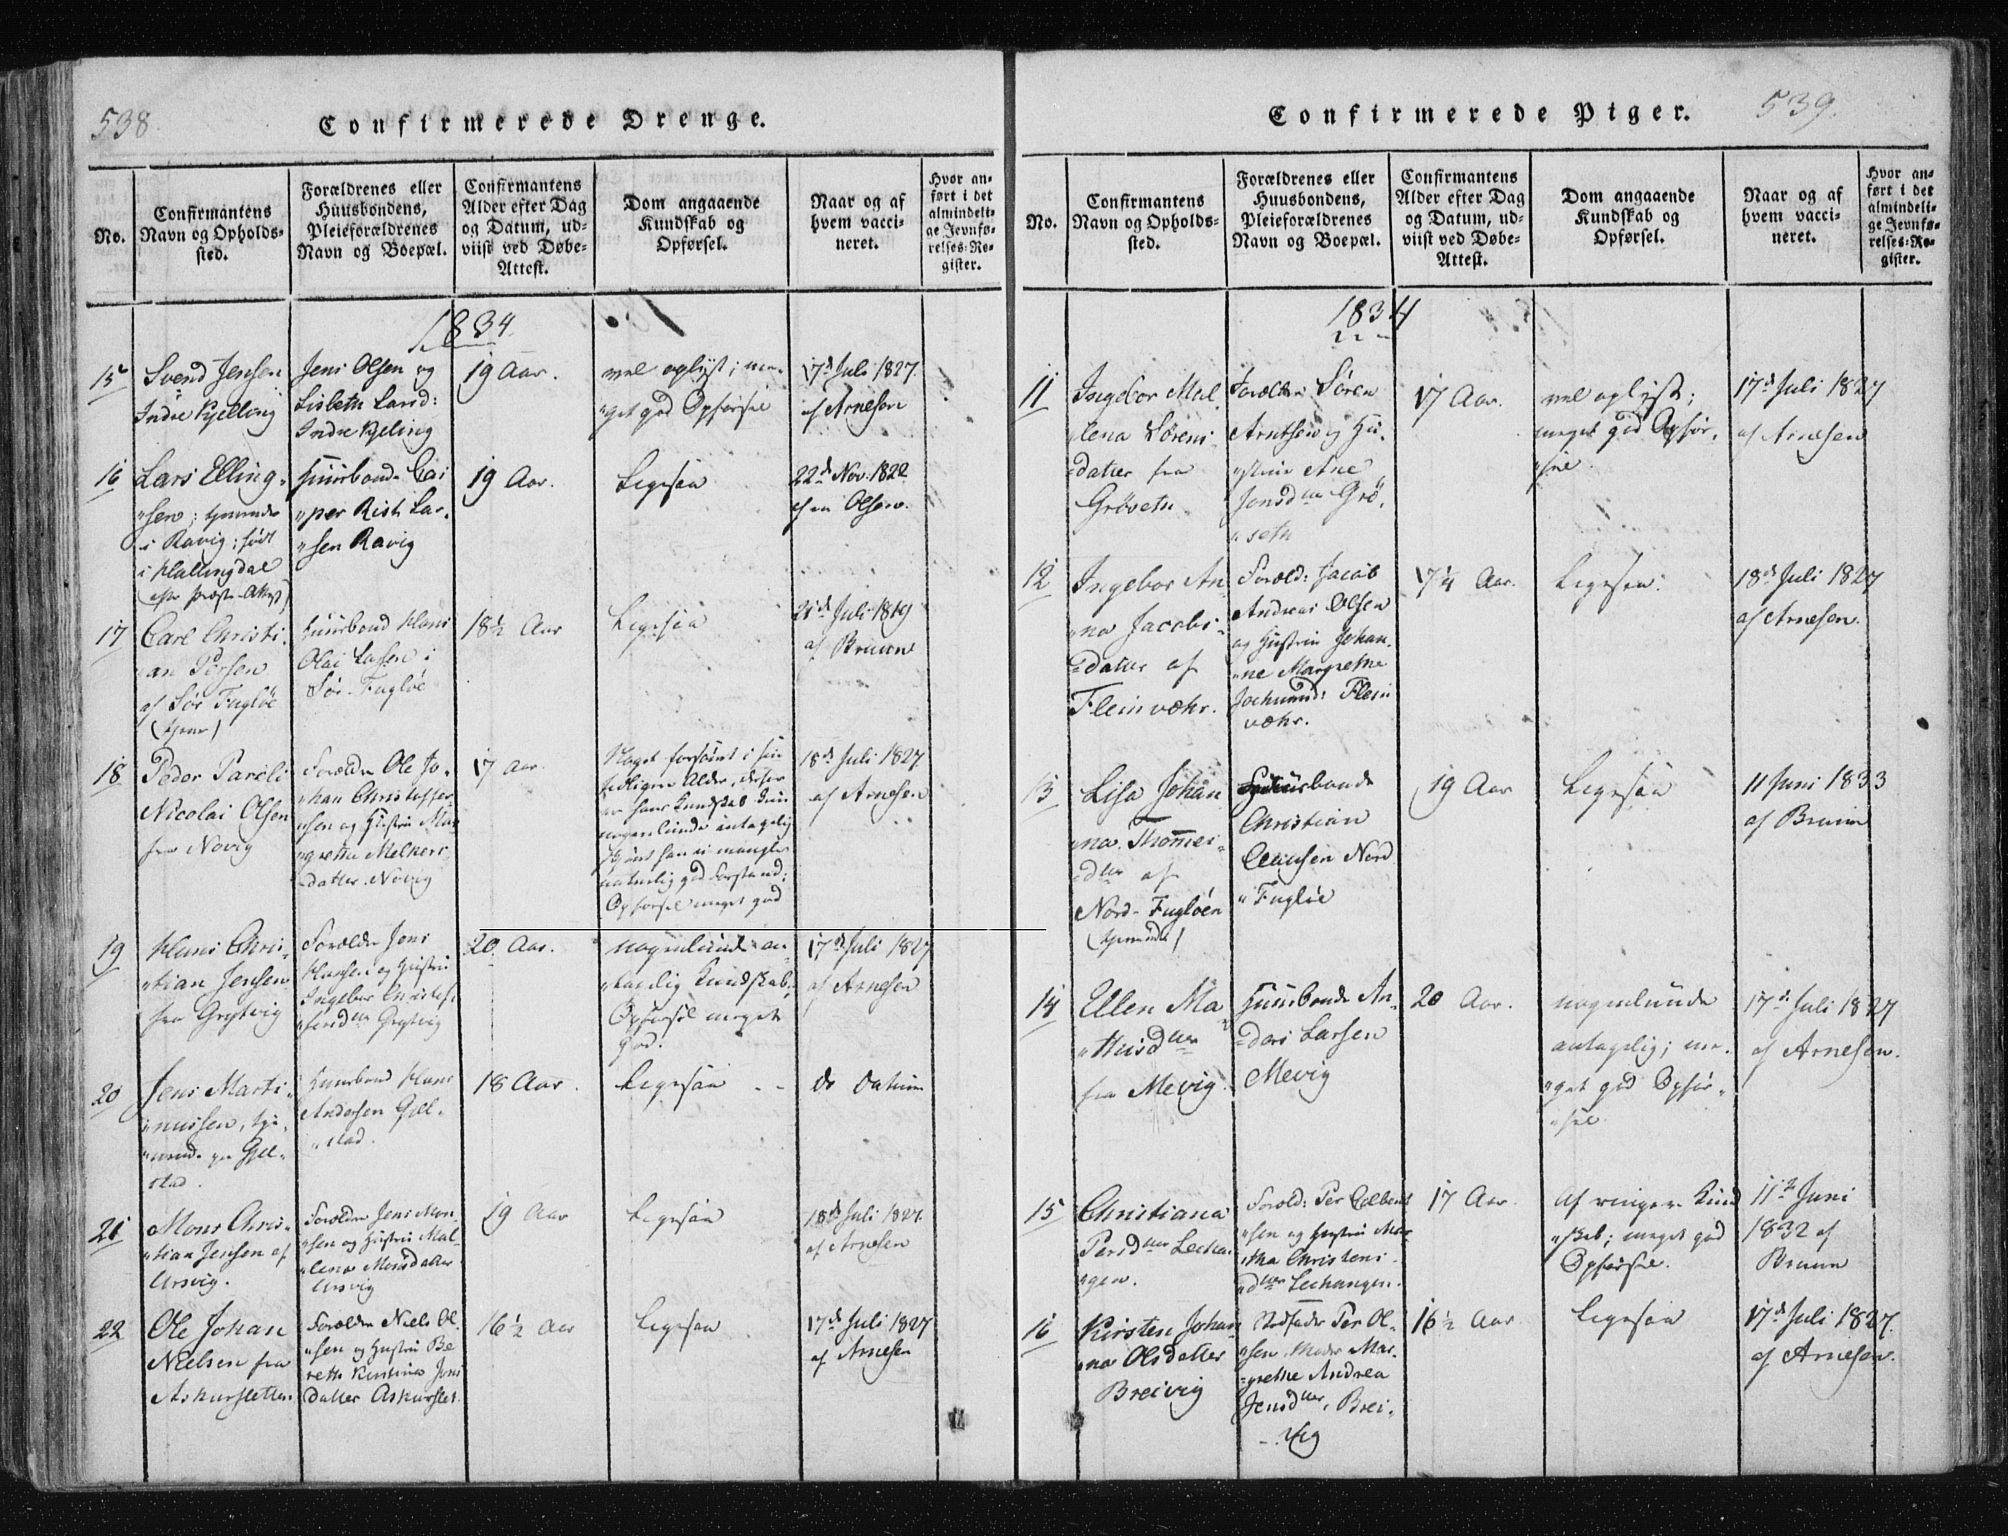 538
Confirmerede Drenge.
No.
Confirmantens
Navn og Opholds-
sted.
Forældrenes eller
Huusbondens,
Pleieforældrenes
Navn og Boepæl.
Confirmantens
Alder efter Dag
og Datum, ud-
viist ved Døbe-
Attest.
Dom angaaende
Kundskab og
Opførsel.
Naar og af
hvem vacci-
neret.
Hvor an-
ført i det
almindeli-
ge Jevnfø-
relses-Re-
gister.
1834.
15
Svend Jensen
Indre Kjelling
Jens Olsen og
Lisbeth Larsd:
Indre Kjeling
19 Aar.
vel oplyst; me-
"get god Opførsel
17d Juli 1827.
af Arnesen
16
Lars Elling-
"sen; tjenende
i Ravig; født
i Hallingdal
(efter Præste-Attest)
Huusbonde Cas
"per Rist Lar-
"sen Ravig
19 Aar.
Ligesaa
22d Nov. 1822
af Olsen.
17
Carl Christi-
"an Persen
af Sør Fugløe
(tjener)
Huusbond Hans
Olai Larsen i
Sør-Fugløe
18½ Aar
Ligesaa
21d Juli 1819
af Bruun
18
Peder Pareli
Nicolai Olsen
fra Novig
Forældre Ole Jo-
"han Christoffer
"sen og Hustru Mar
"grethe Melkers
datter Novig
17 Aar.
Noget forsømt i sin
tidligere Alder, derfor
er hans Kundskab kun
nogenlunde antagelig
skjønt han ei mangler
naturlig god Forstand;
Opførsel meget god
18d Juli 1827
af Arnesen
19
Hans Chris-
"tian Jensen
fra Grytvig
Forældre Jens
Hansen og Hustru
Ingebor Christof-
"fersdtr Grytvig
20 Aar.
nogenlunde an-
"tagelig Kundskab,
Opførsel meget
god.
17d Juli 1827
af Arnesen
20
Jens Marti-
"nussen, tje-
"nende paa Gjel-
stad.
Huusbond Hans
Andersen Gjel-
"stad.
18 Aar.
Ligesaa
do Datum
21
Mons Chris-
"tian Jensen af
Arsvig.
Forældre Jens Mon-
"sen og Hustru Mal-
"lena Monsdatter
Arsvig
19 Aar
Ligesaa
18d Juli 1827.
af Arnesen
22
Ole Johan
Nielsen fra
Askurslettn.
Forældre Niels Ol-
"sen og Hustru Be
reth Kirstina Jens
datter Askurslet.
16½ Aar
Ligesaa
17d Juli 1827
af Arnesen
539.
Confirmerede Piger.
No.
Confirmantens
Navn og Opholds-
sted.
Forældrenes eller
Huusbondens,
Pleieforældrenes
Navn og Boepæl.
Confirmantens
Alder efter Dag
og Datum, ud-
viist ved Døbe-
Attest.
Dom angaaende
Kundskab og
Opførsel.
Naar og af
hvem vacci-
neret.
Hvor an-
ført i det
almindeli-
ge Jevnfø-
relses-Re-
gister.
1834
11
Ingebor Mal
"lena Sørens
=datter fra
Grøseth
Forældre Søren
Arntsen og Hu-
"strue Ane
Jonsdtr Grø-
"seth
17 Aar.
vel oplyst;
meget god Opfør-
"sel.
17d Juli 1827
af Arnesen
12
Ingebor An
"na Jacobs-
=datter af
Fleinvæhr.
Foræld: Jacob
Andreas Olsen
og Hustru Johan-
"ne Margrethe
Jochumsd: Flein
væhr.
17¼ Aar.
Ligesaa.
18d Juli 1827
af Arnesen.
13
Lisa Johan
"na Thomes-
=dtr af
Nord-Fugløen
(tjenende)
Huusbonde
Christian
Clausen Nord
"Fugløe
19 Aar
Ligesaa
11 Juni 1833
af Bruun
14
Ellen Ma
"thisdtr
fra Mevig.
Huusbonde An-
=ders Larsen
Mevig
20 Aar.
nogenlunde
antagelig; me-
"get god Opfør-
"sel.
17d Juli 1827
af Arnesen.
15
Christiana
Persdtr Lechan-
"gen.
Foræld: Per Colbent
"sen og Hustru Mar-
"tha Christens-
"dtr Lechangen.
17 Aar
Af ringere Kund
"skab; meget god
Opførsel.
11te Juni
1832 af
Bruun
16
Kirsten Johan
"na Olsdatter
Breivig
Stedfader Per Ol-
"sen. Moder Mar-
"grethe Andrea
Jensdtr, Brei-
-vig
16½ Aar
Ligesaa
17d Juli 1827.
af Arnesen.